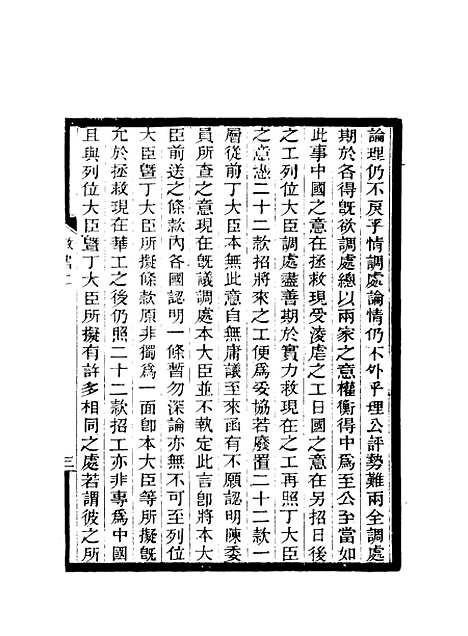 論理仍不戾乎情調處論情仍不外乎理公評勢難兩全調處
期於各得旣欲調處總以兩家之意權衡得中爲至公至當如
此事中國之意在拯救現受淩虐之工日國之意在另招日後
之工列位大臣調處盡善期於實力救現在之工再照丁大臣
之意憑二十二款招將來之工便爲妥協若廢置二十二款一
層從前丁大臣本無此意自無庸議至來函有不願認明陳委
員所查之意現在旣議調處本大臣並不執定此言卽將本大
臣前送之條款內各國認明一條暫勿深論亦無不可至列位
大臣曁丁大臣所擬條款原非獨爲一面卽本大臣等所擬旣
允於拯救現在華工之後仍照二十二款招工亦非專爲中國
且與列位大臣曁丁大臣所擬有許多相同之處若謂彼之所
三